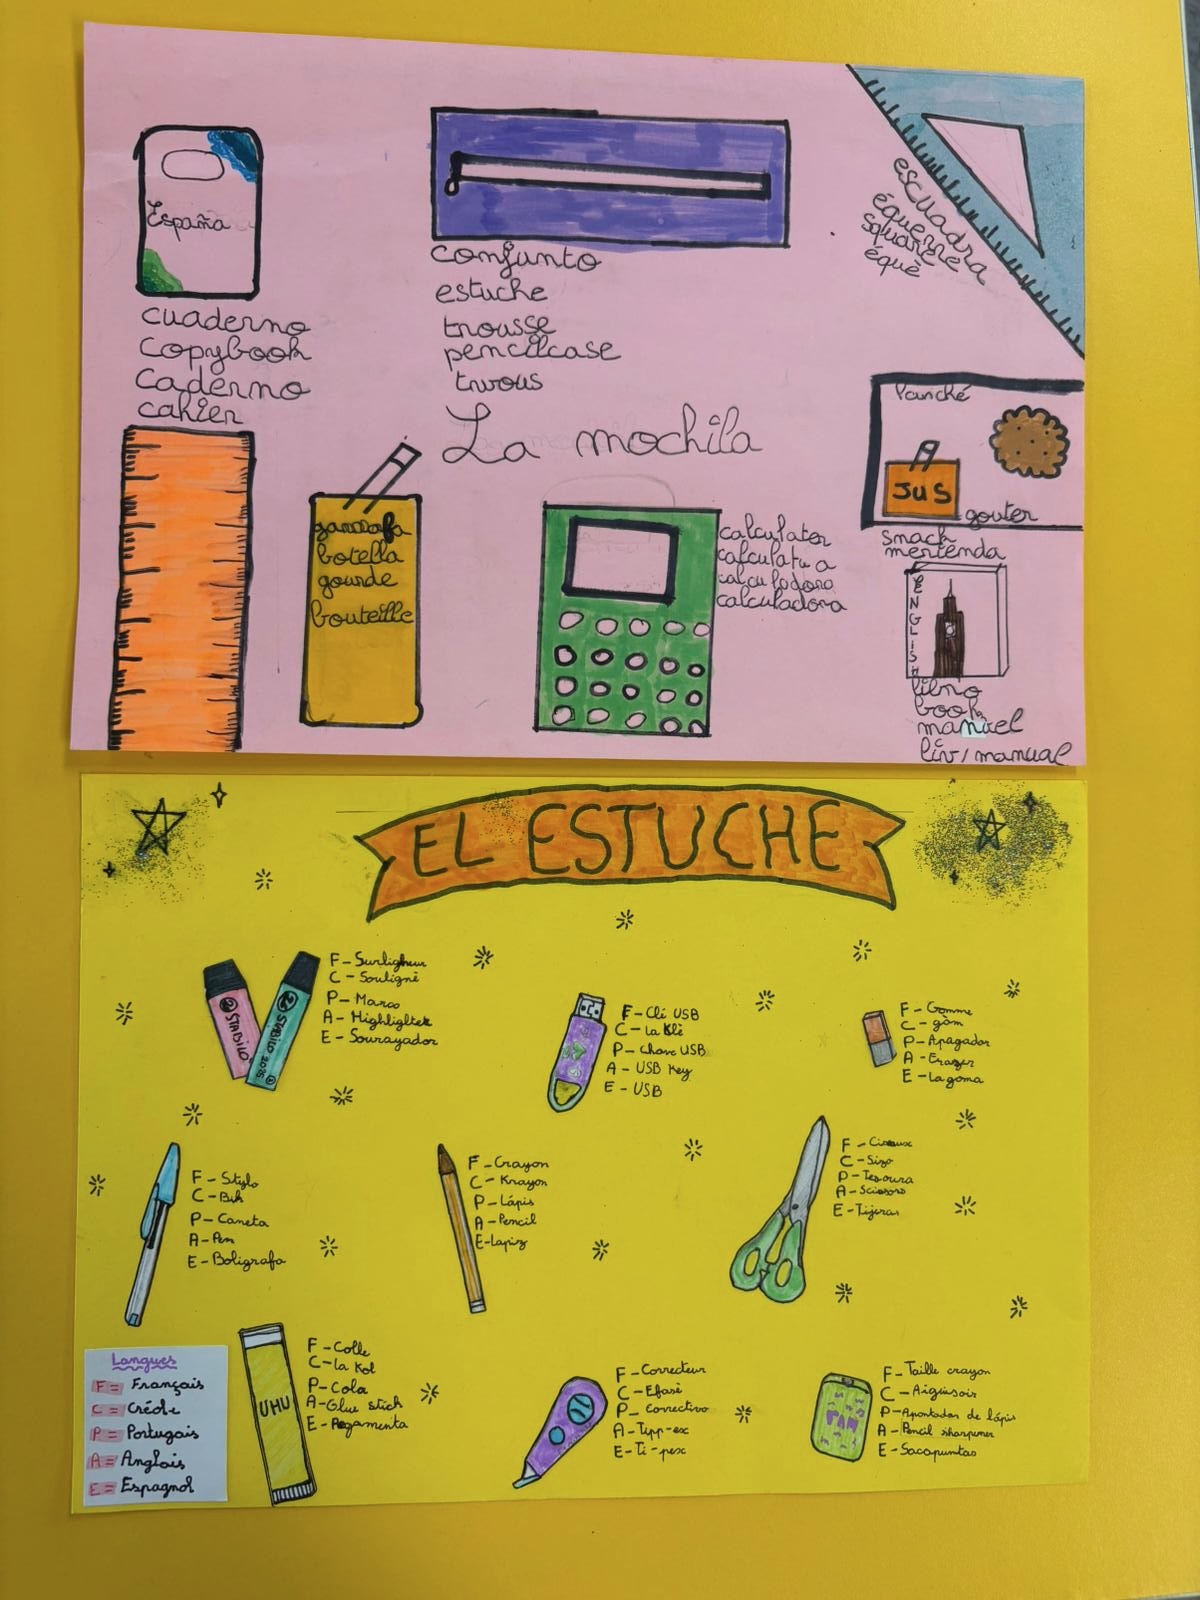 España
cuaderno
copybook
caderno
cahier
conjunto
estuche
trousse
pencilcase
twous
escuadra
équerrera
square
équè
La mochila
garrafa
botella
gourde
bouteille
calculator
calculatu a
calculadora
calculadora
Panché
JUS
gouter
smack
merienda
ENGLISH
libro
book
manuel
liv/manual
EL ESTUCHE
STABILO
STABILO 2035
F - Surligheur
C - Souligné
P - Marco
A - Highlighter
E - Sourayador
F - Clé USB
C - La Klè
P - Chave USB
A - USB Key
E - USB
F - Gomme
C - gòm
P - Apagador
A - Erazer
E - La goma
F - Stylo
C - Bik
P - Caneta
A - Pen
E - Boligrafo
F - Crayon
C - Krayon
P - Lápis
A - Pencil
E - Lapiz
F - Ciseaux
C - Sizo
P - Tesoura
A - Scissors
E - Tijeras
Langues
F = Français
C = Créole
P = Portugais
A = Anglais
E = Espagnol
UHU
F - Colle
C - la Kol
P - Cola
A - Glue stick
E - Pegamenta
F - Correcteur
C - Efasè
P - Corrective
A - Tipp-ex
E - Ti-pex
F - Taille crayon
C - Aigüisoir
P - Apontador de lápis
A - Pencil sharpener
E - Sacapuntas